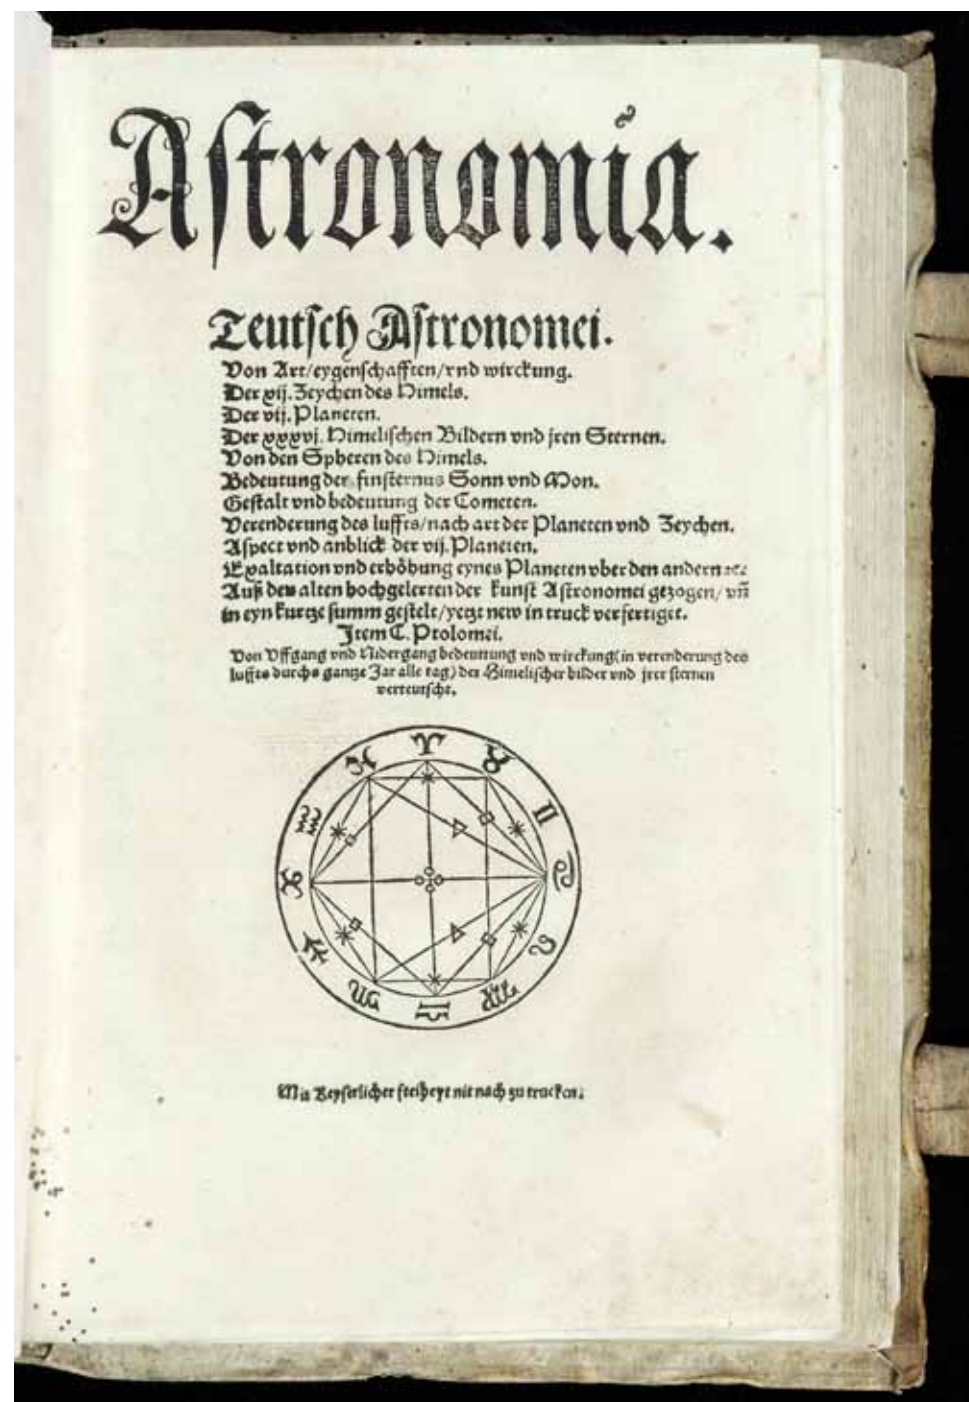 Astronomia.
Teutsch Astronomei.
Von Art/eygenschafften/vnd wirckung.
Der xij. Zeychen des Himels.
Der vij. Planeten.
Der xxxvj. Himelischen Bildern vnd jren Sternen.
Von den Spheren des Himels.
Bedeutung der finsternus Sonn vnd Mon.
Gestalt vnd bedeutung der Cometen.
Verenderung des luffts/nach art der Planeten vnd Zeychen.
Aspect vnd anblick der vij. Planeten.
Exaltation vnd erhöhung eynes Planeten vber den andern ꝛc.
Auß den alten hochgelerten der kunst Astronomei gezogen/ vñ
in eyn kurtze summ gestelt/yetzt new in truck verfertiget.
Item C. Ptolomei.
Von Vffgang vnd Nidergang bedeuttung vnd wirckung(in verenderung des
luffts durchs gantze Jar alle tag) der Himelischer bilder vnd jrer sternen
verteutscht.
♈ ♉ ♊ ♋ ♌ ♍ ♎ ♏ ♐ ♑ ♒ ♓
Mit Keyserlicher freiheyt nit nach zu trucken.